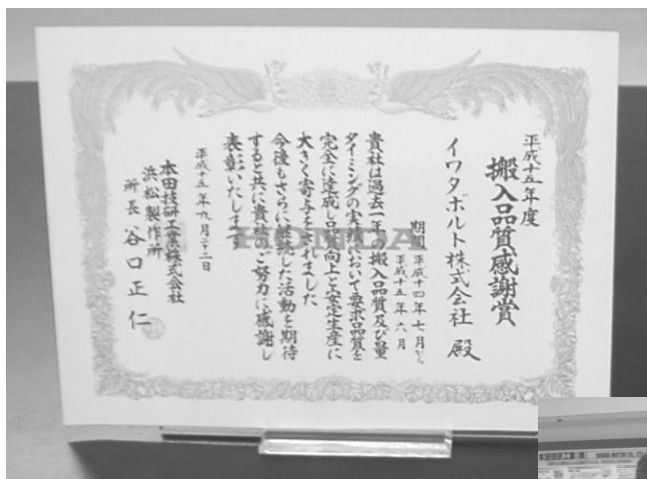 平成十五年度
搬入品質感謝賞
イワタボルト株式会社 殿
期間 平成十四年七月から
平成十五年六月
貴社は過去一年の搬入品質及び量
タイミングの実績において要求品質を
完全に達成し品質向上と安定生産に
大きく寄与をされました
今後もさらに継続した活動を期待
すると共に貴社のご努力に感謝し
表彰いたします
平成十五年九月二十二日
本田技研工業株式会社
浜松製作所
所長 谷口正仁
HONDA
本田技研工業(株) HONDA MOTOR CO., LTD.